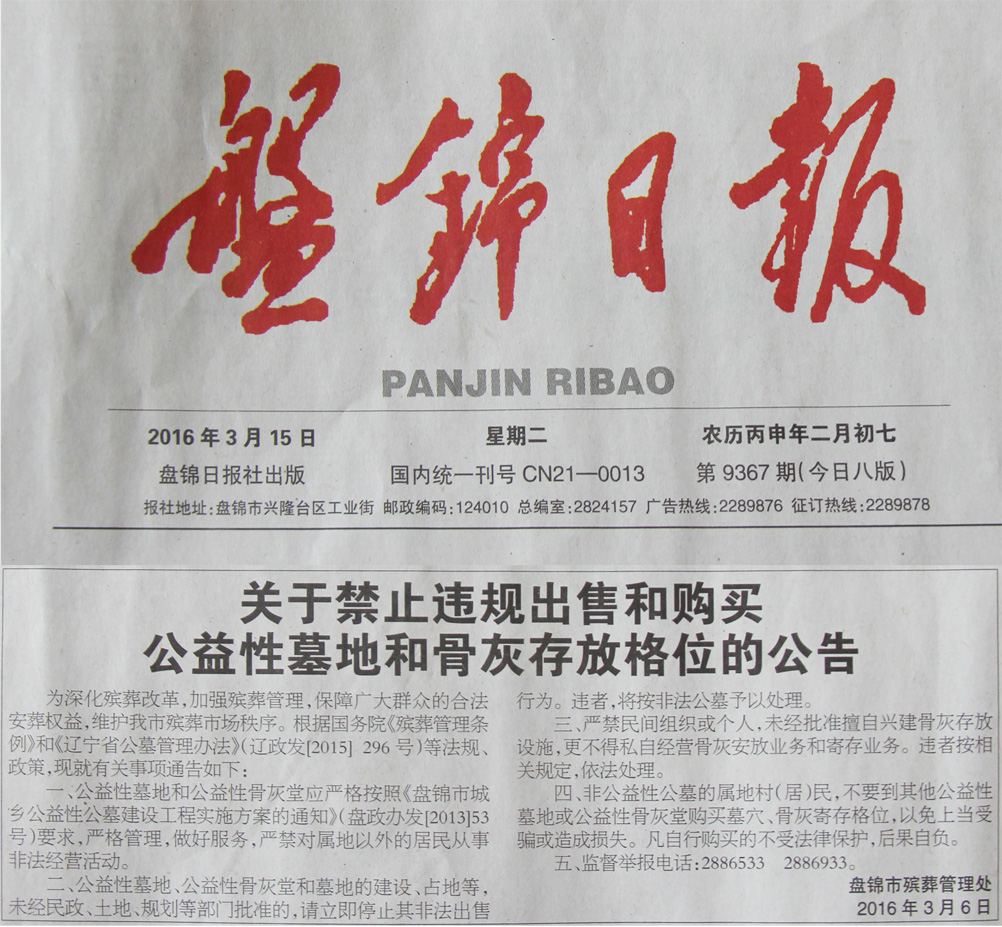 盤錦日報
PANJIN RIBAO
2016年3月15日 星期二 农历丙申年二月初七
盘锦日报社出版 国内统一刊号CN21—0013 第9367期(今日八版)
报社地址:盘锦市兴隆台区工业街 邮政编码:124010 总编室:2824157 广告热线:2289876 征订热线:2289878
关于禁止违规出售和购买
公益性墓地和骨灰存放格位的公告
为深化殡葬改革,加强殡葬管理,保障广大群众的合法
安葬权益,维护我市殡葬市场秩序。根据国务院《殡葬管理条
例》和《辽宁省公墓管理办法》(辽政发[2015] 296号)等法规、
政策,现就有关事项通告如下:
一、公益性墓地和公益性骨灰堂应严格按照《盘锦市城
乡公益性公墓建设工程实施方案的通知》(盘政办发[2013]53
号)要求,严格管理,做好服务,严禁对属地以外的居民从事
非法经营活动。
二、公益性墓地、公益性骨灰堂和墓地的建设、占地等,
未经民政、土地、规划等部门批准的,请立即停止其非法出售
行为。违者,将按非法公墓予以处理。
三、严禁民间组织或个人,未经批准擅自兴建骨灰存放
设施,更不得私自经营骨灰安放业务和寄存业务。违者按相
关规定,依法处理。
四、非公益性公墓的属地村(居)民,不要到其他公益性
墓地或公益性骨灰堂购买墓穴、骨灰寄存格位,以免上当受
骗或造成损失。凡自行购买的不受法律保护,后果自负。
五、监督举报电话:2886533 2886933。
盘锦市殡葬管理处
2016年3月6日